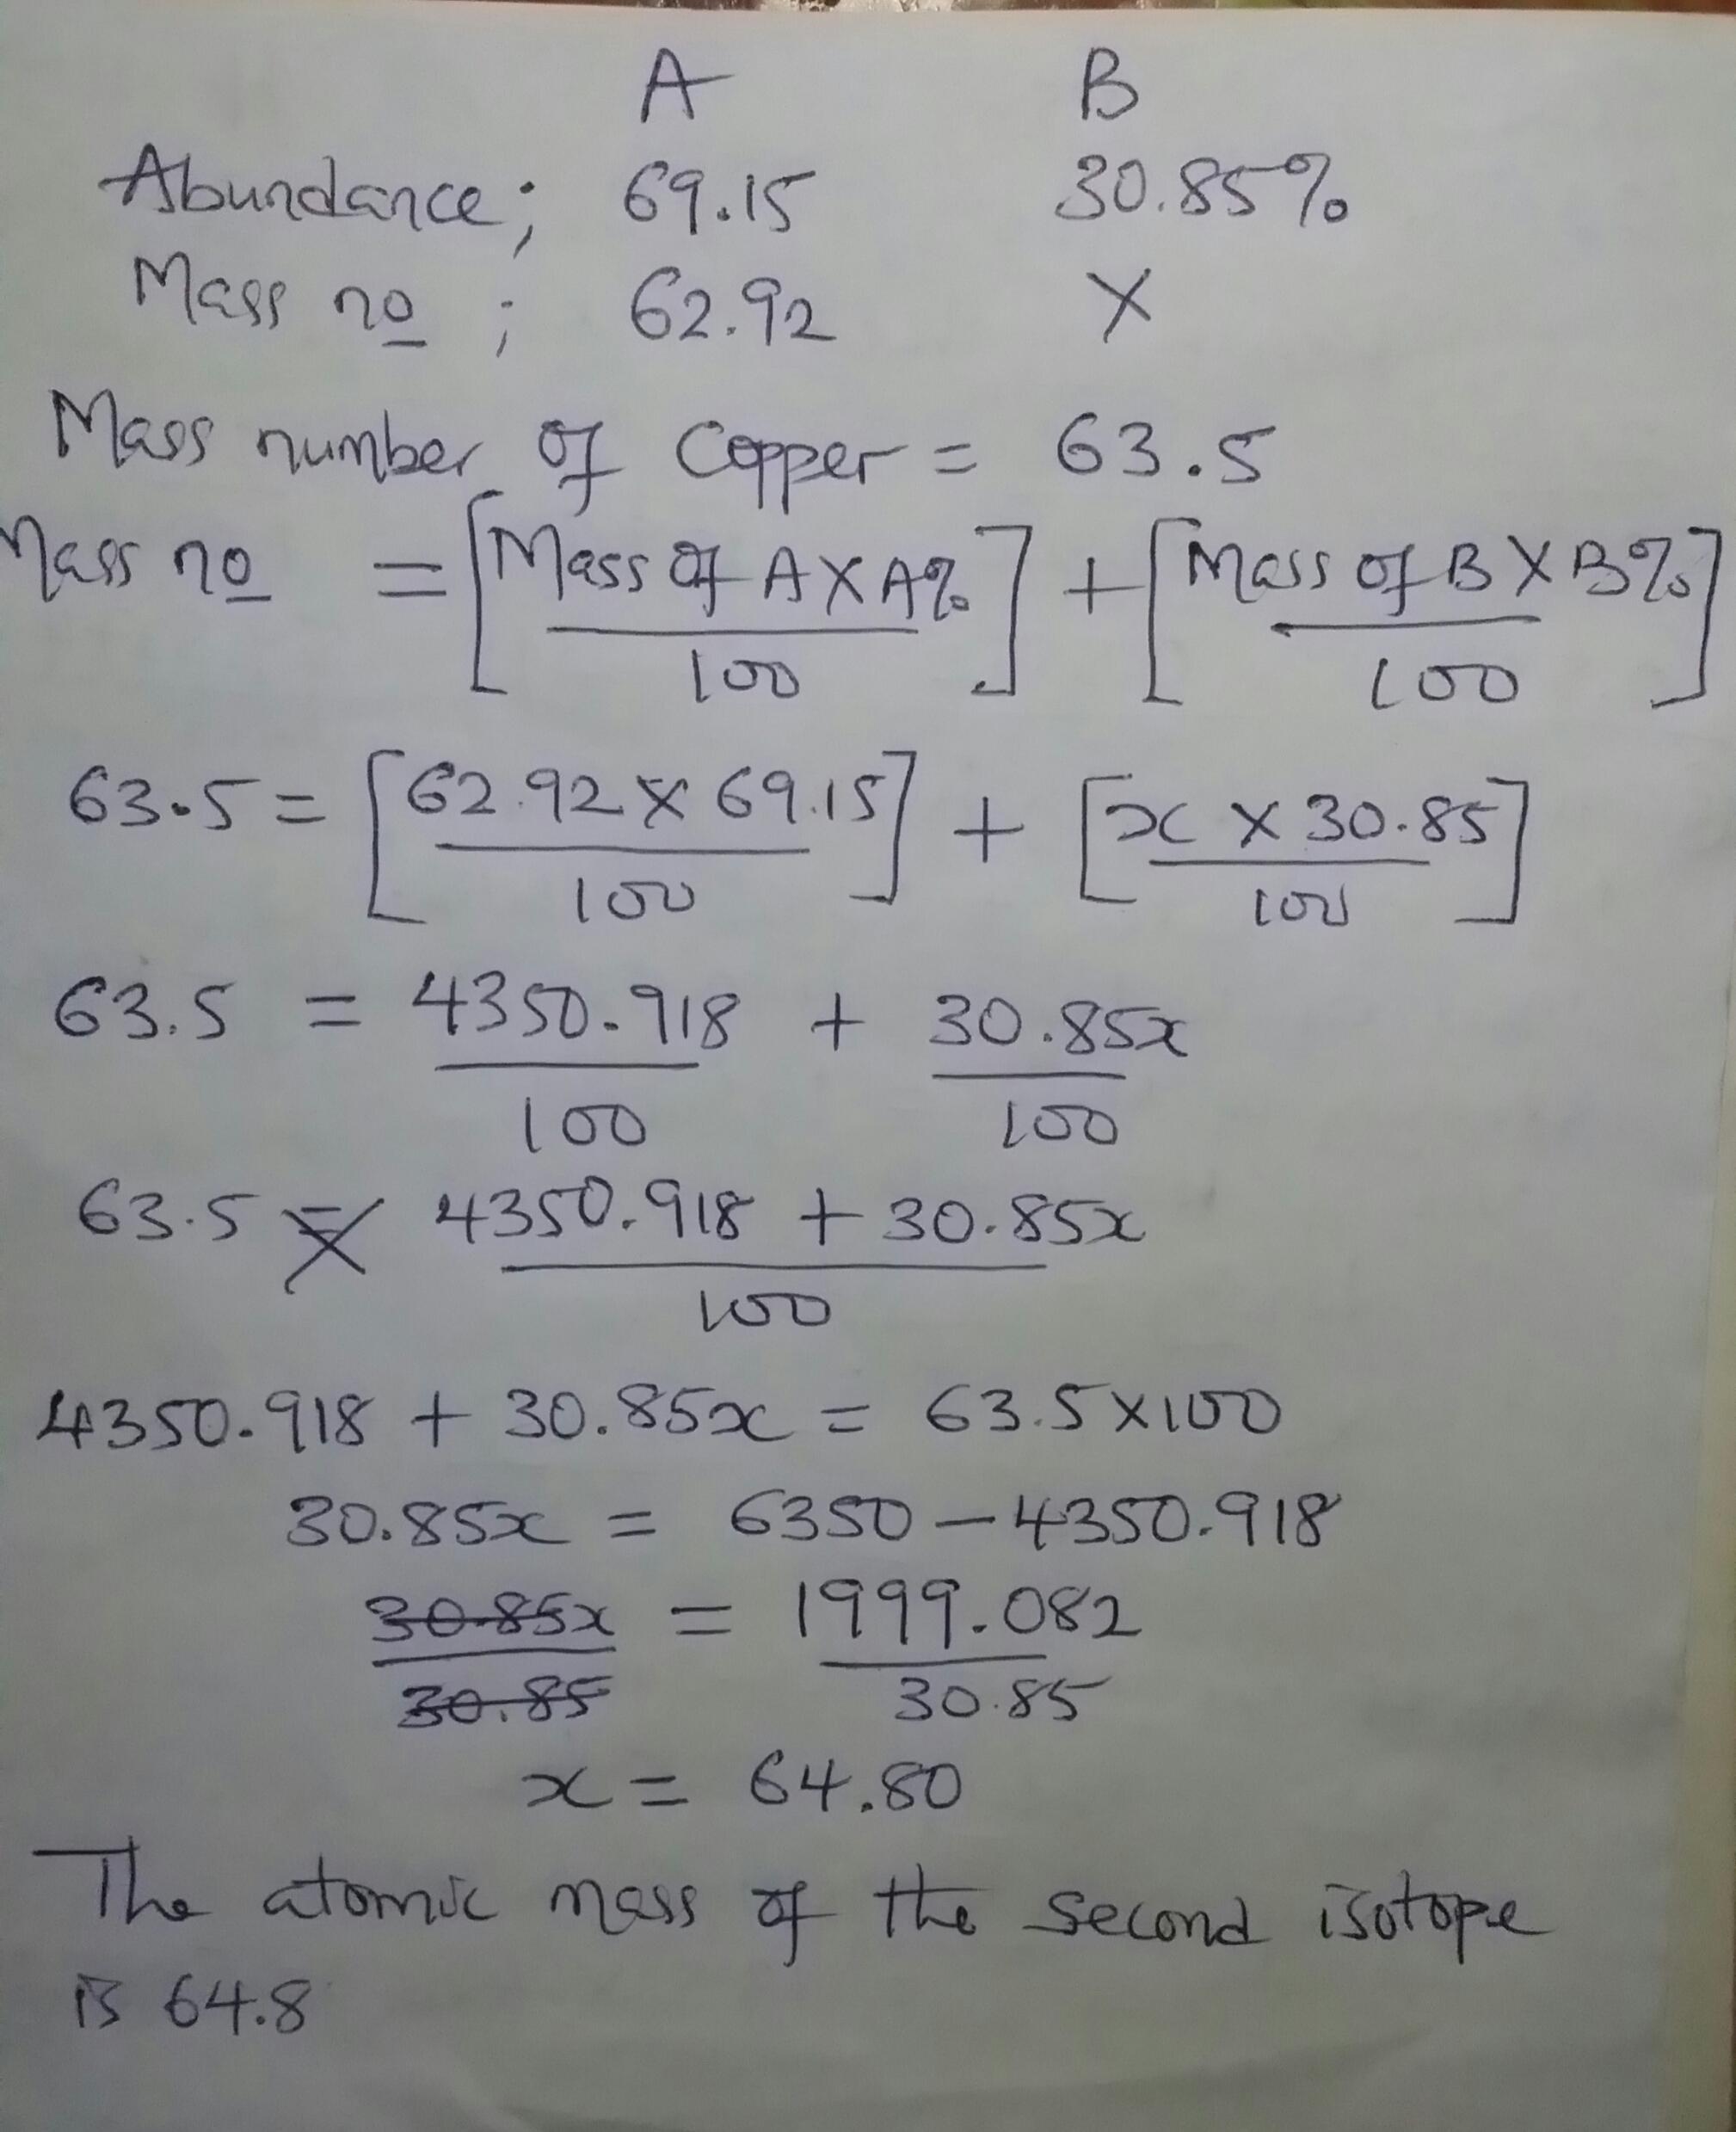 A B
Abundance; 69.15 30.85%
Mass no ; 62.92 X
Mass number of Copper = 63.5
Mass no = [Mass of A X A% / 100] + [Mass of B X B% / 100]
63.5 = [62.92 x 69.15 / 100] + [x X 30.85 / 100]
63.5 = 4350.918 / 100 + 30.85x / 100
63.5 = 4350.918 + 30.85x / 100
4350.918 + 30.85x = 63.5 X 100
30.85x = 6350 - 4350.918
30.85x / 30.85 = 1999.082 / 30.85
x = 64.80
The atomic mass of the second isotope
is 64.8